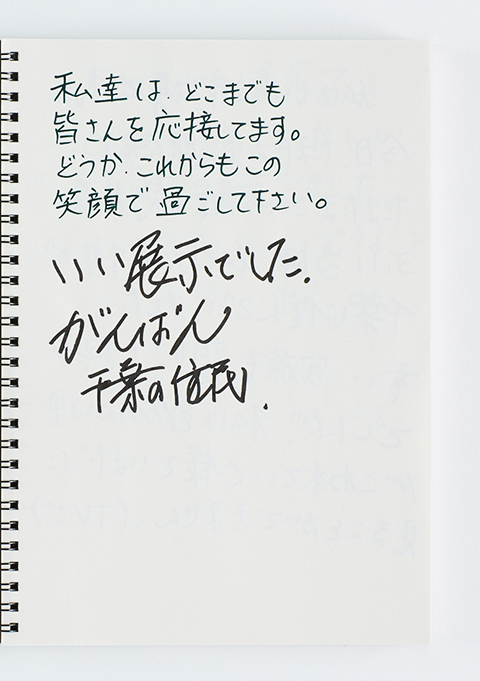 私達は、どこまでも
皆さんを応接してます。
どうか、これからもこの
笑顔で過ごして下さい。
いい展示でした.
がんばれ
千葉の住民.